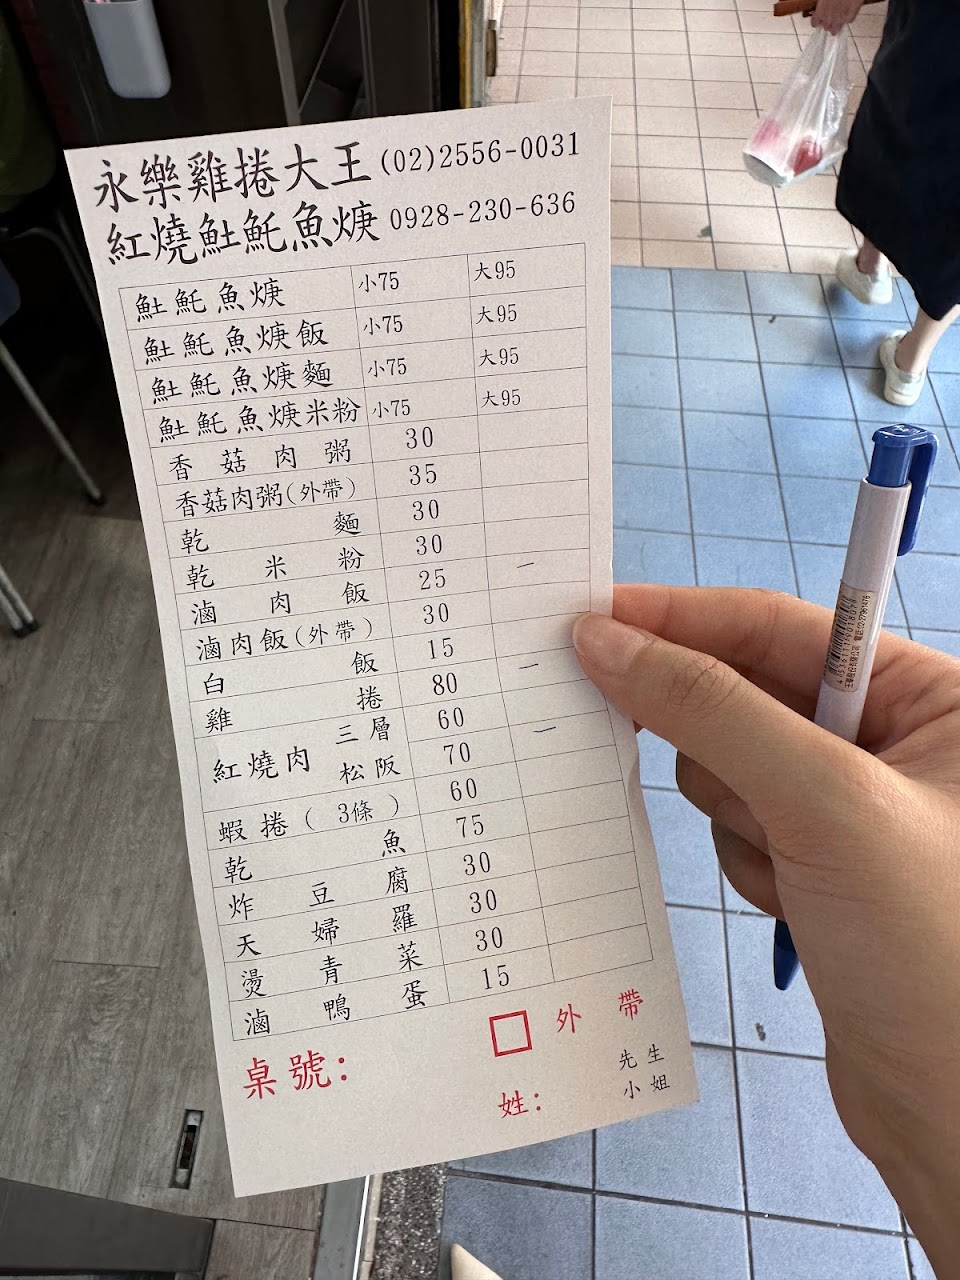 永樂雞捲大王(02)2556-0031
紅燒𩵚魠魚焿 0928-230-636
𩵚魠魚焿 小75 大95
𩵚魠魚焿飯 小75 大95
𩵚魠魚焿麵 小75 大95
𩵚魠魚焿米粉 小75 大95
香菇肉粥 30
香菇肉粥(外帶) 35
乾麵 30
乾米粉 30
滷肉飯 25 一
滷肉飯(外帶) 30
白飯 15
雞捲 80 一
紅燒肉 三層 60
松阪 70 一
蝦捲( 3條 ) 60
乾魚 75
炸豆腐 30
天婦羅 30
燙青菜 30
滷鴨蛋 15
桌號: □ 外帶
姓: 先生
小姐
4 153611 9018079
王華股份有限公司 電話:02-27961476